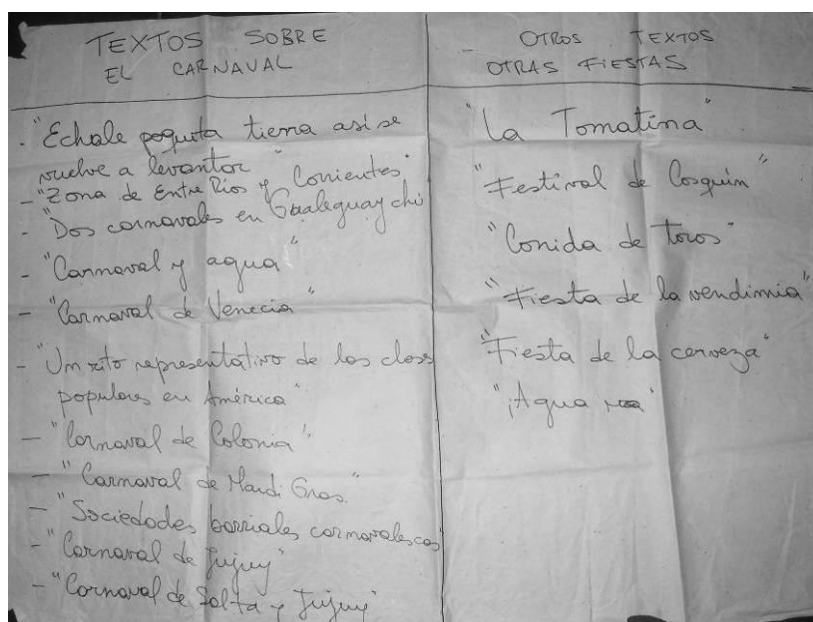 TEXTOS SOBRE
EL CARNAVAL
. "Echale poquita tierra asi se
vuelve a levantar"
- "Zona de Entre Rios y Corrientes"
- "Dos carnavales en Gualeguaychú
- "Carnaval y agua"
- "Carnaval de Venecia"
- "Un rito representativo de las clases
populares en América"
- "Carnaval de Colonia"
- "Carnaval de Mardi Gras"
- "Sociedades barriales carnavalescas
- "Carnaval de Jujuy"
- "Carnaval de Salta y Jujuy"
OTROS TEXTOS
OTRAS FIESTAS
"La Tomatina"
"Festival de Cosquín"
"Corrida de toros"
"Fiesta de la vendimia"
"Fiesta de la cerveza"
"¡Agua